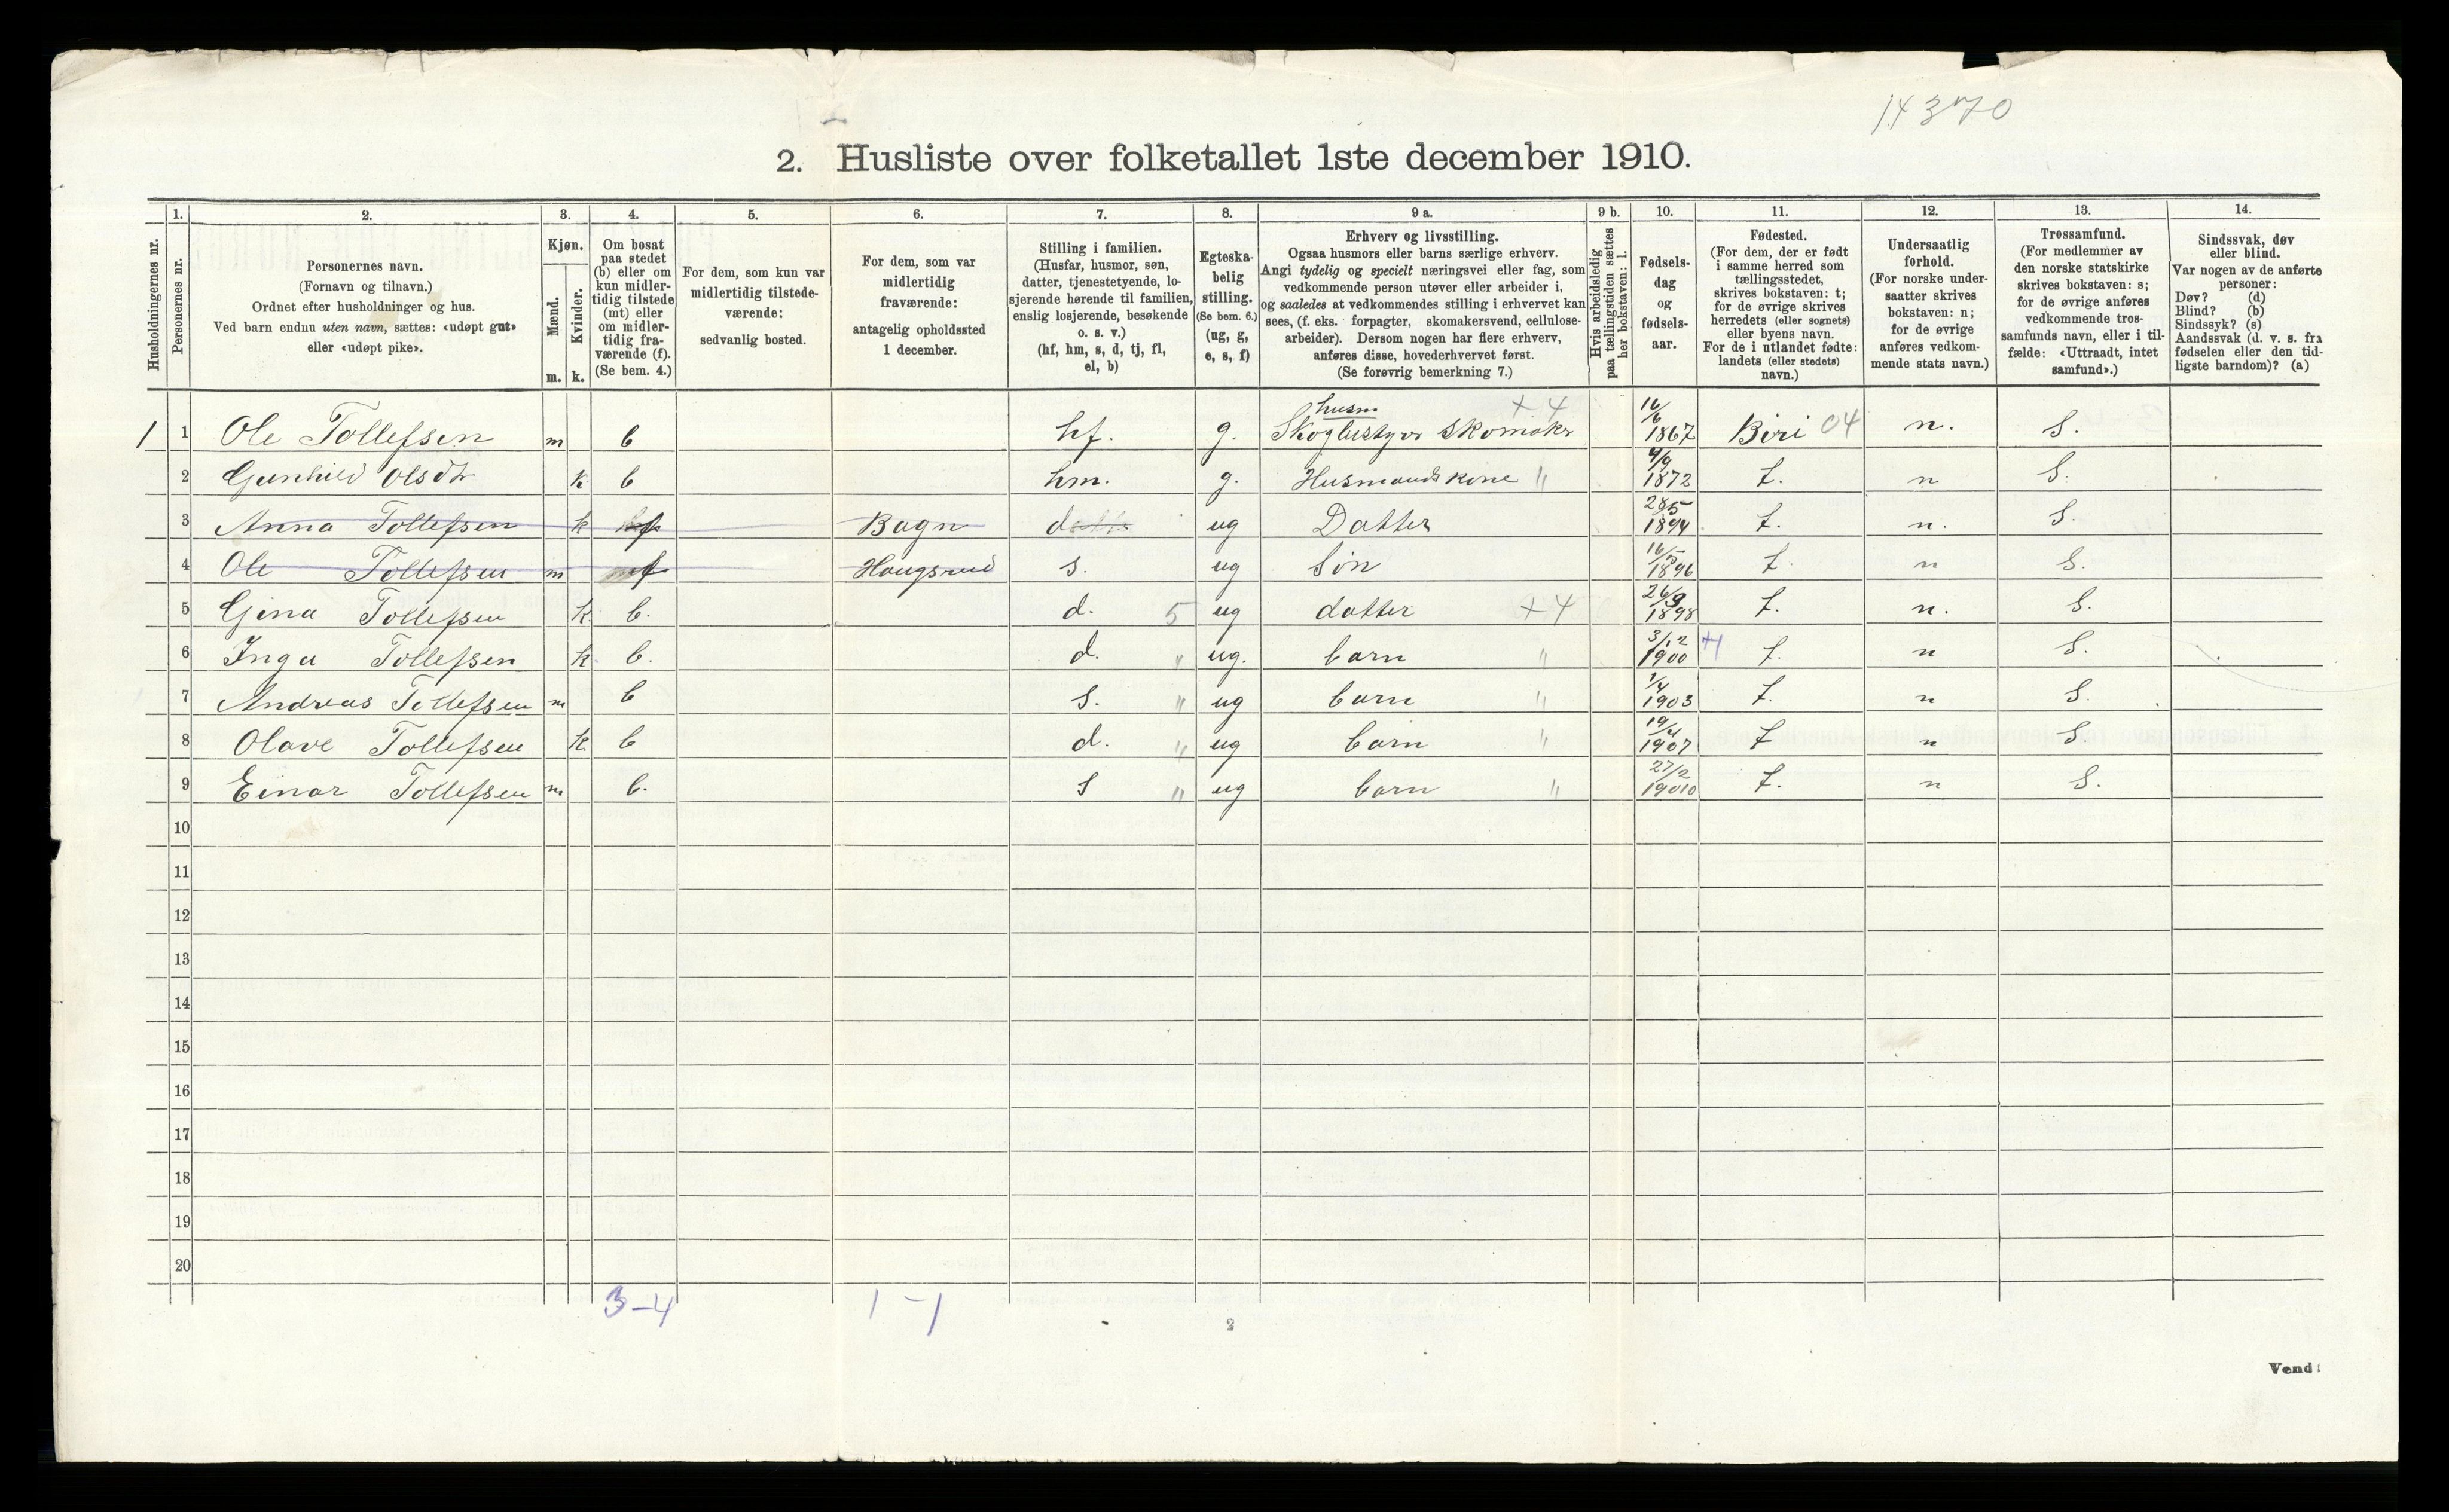 14370
2. Husliste over folketallet 1ste december 1910.
Husholdningernes nr.
1.
Personernes nr.
2.
Personernes navn.
(Fornavn og tilnavn.)
Ordnet efter husholdninger og hus.
Ved barn endnu uten navn, sættes: «udøpt gut»
eller «udøpt pike».
3.
Kjøn.
Mænd.
Kvinder.
m. k.
4.
Om bosat
paa stedet
(b) eller om
kun midler-
tidig tilstede
(mt) eller
om midler-
tidig fra-
værende (f).
(Se bem. 4.)
5.
For dem, som kun var
midlertidig tilstede-
værende:
sedvanlig bosted.
6.
For dem, som var
midlertidig
fraværende:
antagelig opholdssted
1 december.
7.
Stilling i familien.
(Husfar, husmor, søn,
datter, tjenestetyende, lo-
sjerende hørende til familien,
enslig losjerende, besøkende
o. s. v.)
(hf, hm, s, d, tj, fl,
el, b)
8.
Egteska-
belig
stilling.
(Se bem. 6.)
(ug, g,
e, s, f)
9 a.
Erhverv og livsstilling.
Ogsaa husmors eller barns særlige erhverv.
Angi tydelig og specielt næringsvei eller fag, som
vedkommende person utøver eller arbeider i,
og saaledes at vedkommendes stilling i erhvervet kan
sees, (f. eks. forpagter, skomakersvend, cellulose-
arbeider). Dersom nogen har flere erhverv,
anføres disse, hovederhvervet først.
(Se forøvrig bemerkning 7.)
9 b.
Hvis arbeidsledig
paa tællingstiden sættes
her bokstaven: l.
10.
Fødsels-
dag
og
fødsels-
aar.
11.
Fødested.
(For dem, der er født
i samme herred som
tællingsstedet,
skrives bokstaven: t;
for de øvrige skrives
herredets (eller sognets)
eller byens navn.
For de i utlandet fødte:
landets (eller stedets)
navn.)
12.
Undersaatlig
forhold.
(For norske under-
saatter skrives
bokstaven: n;
for de øvrige
anføres vedkom-
mende stats navn.)
13.
Trossamfund.
(For medlemmer av
den norske statskirke
skrives bokstaven: s;
for de øvrige anføres
vedkommende tros-
samfunds navn, eller i til-
fælde: «Uttraadt, intet
samfund».)
14.
Sindssvak, døv
eller blind.
Var nogen av de anførte
personer:
Døv? (d)
Blind? (b)
Sindssyk? (s)
Aandssvak (d. v. s. fra
fødselen eller den tid-
ligste barndom)? (a)
husm + 4
1 1 Ole Tollefsen m b hf. g. Skomaker 16/6 1867 Biri 04 n. S.
2 Gunhild Olsdtr k b hm. g. Husmandskone " 4/9 1872 t. n S.
3 Anna Tollefsen k f Bagn d ug Datter 28/5 1894 t. n. S.
4 Ole Tollefsen m f Haugsrud s. ug Søn 16/5 1896 t. n S.
5 Gina Tollefsen k. b. d. 5 ug datter + 4 26/9 1898 t. n. S.
6 Inga Tollefsen k b. d. " ug. barn " 3/12 1900 t. n S.
7 Andreas Tollefsen m b s. " ug barn " 1/4 1903 t. n S.
8 Olave Tollefsen k. b d. " ug barn " 1907 t n S.
9 Einar Tollefsen m b. s " ug barn " 27/2 19010 t. n S.
10
11
12
13
14
15
16
17
18
19
20
3-4 1-1
2
Vend!